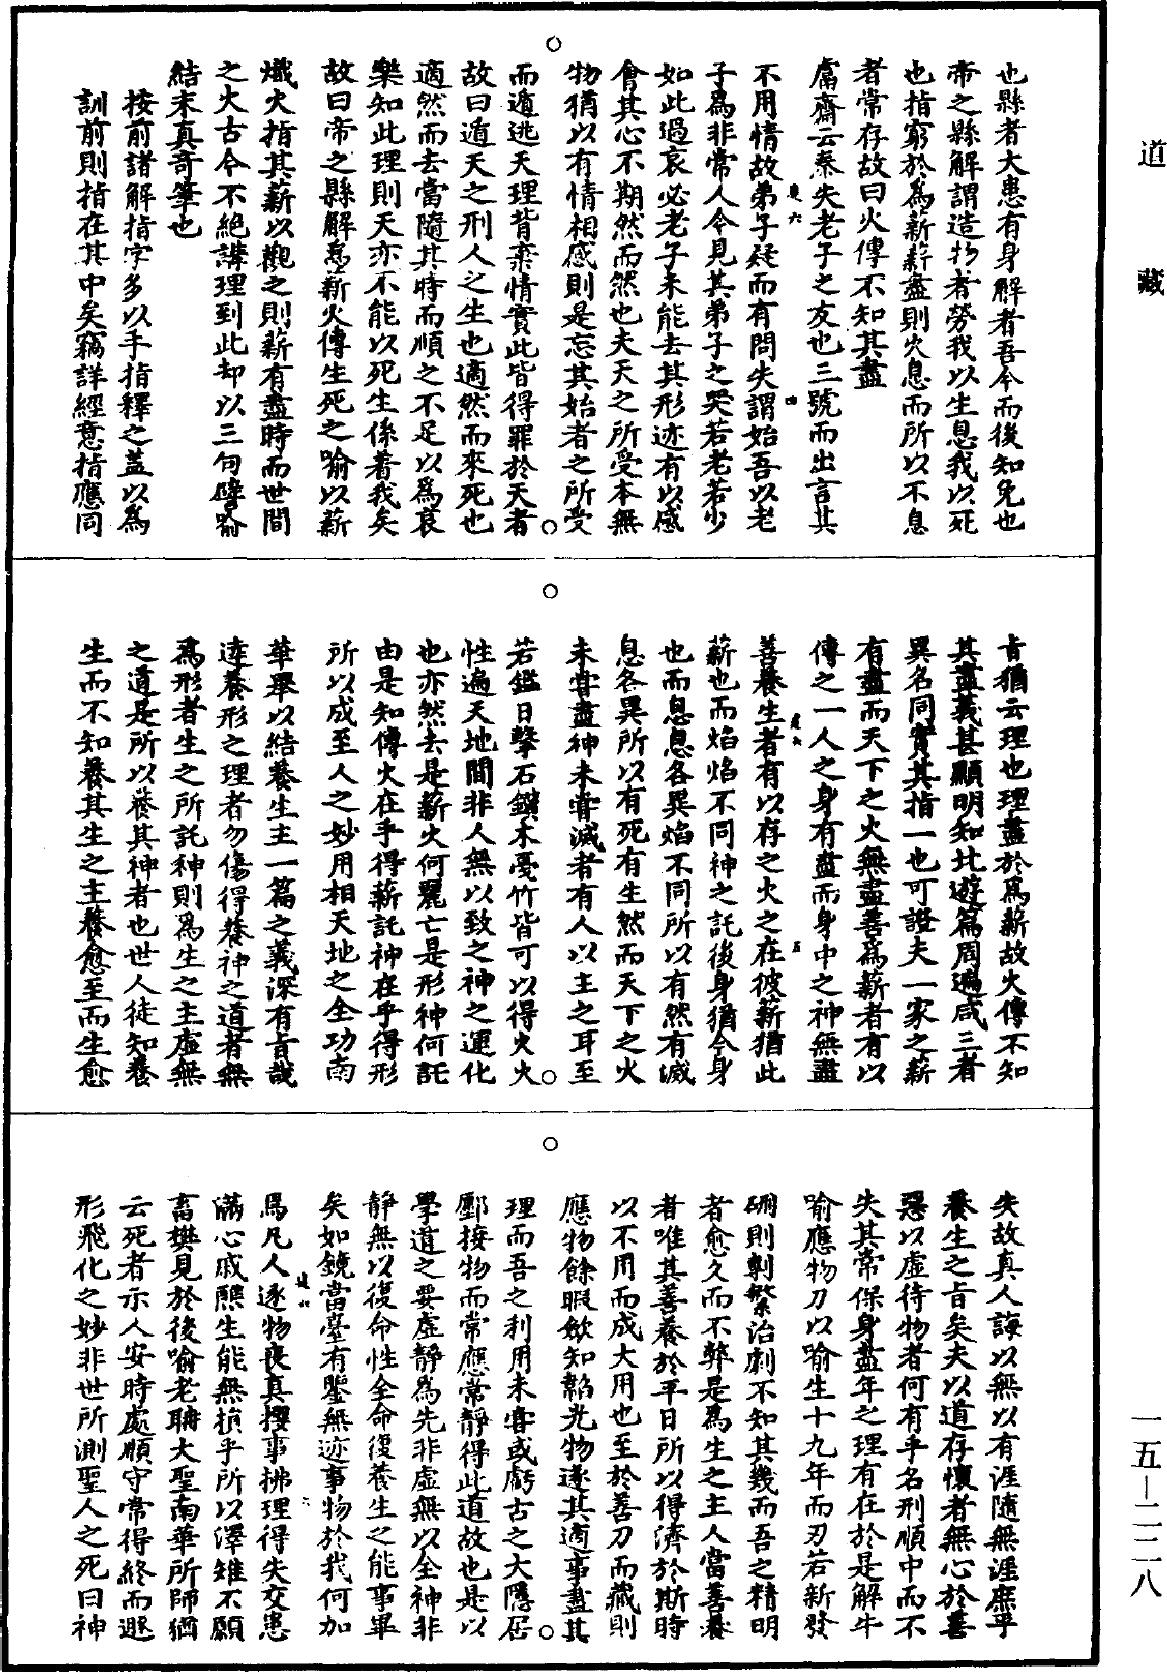 道藏
也縣者大患有身解者吾今而後知免也
帝之縣解謂造物者勞我以生息我以死
也指窮於為薪薪盡則火息而所以不息
者常存故曰火傳不知其盡
鬳齋云秦失老子之友也三號而出言其
不用情故弟子疑而有問失謂始吾以老
子為非常人今見其弟子之哭若老若少
如此過哀必老子未能去其形迹有以感
會其心不期然而然也夫天之所受本無
物猶以有情相感則是忘其始者之所受
而遁逃天理背棄情實此皆得罪於天者
故曰遁天之刑人之生也適然而來死也
適然而去當隨其時而順之不足以為哀
樂知此理則天亦不能以死生係著我矣
故曰帝之縣解惡薪火傳生死之喻以薪
熾火指其薪以觀之則薪有盡時而世間
之火古今不絕講理到此却以三句譬喻
結末真奇筆也
按前諸解指字多以手指釋之蓋以為
訓前則指在其中矣竊詳經意指應同
旨猶云理也理盡於為薪故火傳不知
其盡義甚顯明知北遊篇周遍咸三者
異名同實其指一也可證夫一家之薪
有盡而天下之火無盡善為薪者有以
傳之一人之身有盡而身中之神無盡
善養生者有以存之火之在彼薪猶此
薪也而焰焰不同神之託後身猶今身
也而息息各異焰不同所以有然有滅
息各異所以有死有生然而天下之火
未嘗盡神未嘗滅者有人以主之耳至
若鑑日擊石鑽木戛竹皆可以得火火
性遍天地間非人無以致之神之運化
也亦然去是薪火何麗亡是形神何託
由是知傳火在乎得薪託神在乎得形
所以成至人之妙用相天地之全功南
華舉以結養生主一篇之義深有旨哉
達養形之理者勿傷得養神之道者無
為形者生之所託神則為生之主虛無
之道是所以養其神者也世人徒知養
生而不知養其生之主養愈至而生愈
失故真人誨以無以有涯隨無涯庶乎
養生之旨矣夫以道存懷者無心於善
惡以虛待物者何有乎名刑順中而不
失其常保身盡年之理有在於是解牛
喻應物刀以喻生十九年而刃若新發
硎則剸繁治劇不知其幾而吾之精明
者愈久而不弊是為生之主人當善養
者唯其善養於平日所以得濟於斯時
以不用而成大用也至於善刀而藏則
應物餘暇斂知韜光物遂其適事盡其
理而吾之利用未嘗或虧古之大隱居
鄽接物而常應常靜得此道故也是以
學道之要虛靜為先非虛無以全神非
靜無以復命性全命復養生之能事畢
矣如鏡當臺有鑒無迹事物於我何加
焉凡人逐物喪真攖事拂理得失交患
滿心戚熙生能無損乎所以澤雉不願
畜樊見於後喻老聃大聖南華所師猶
云死者示人安時處順守常得終而遐
形飛化之妙非世所測聖人之死曰神
一五—二二八